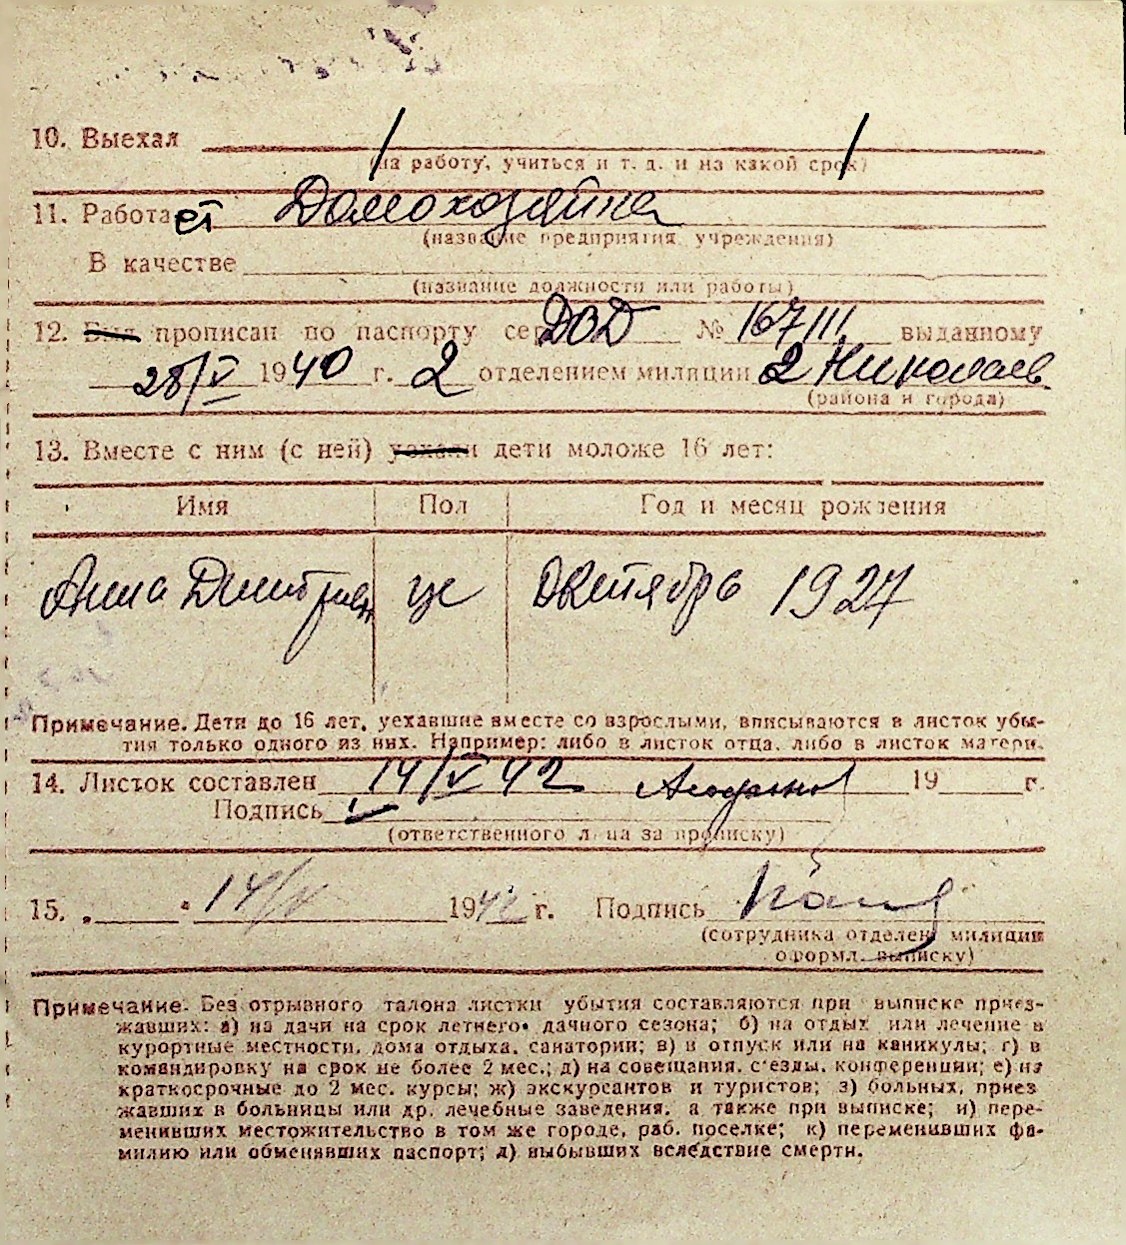 10. Выехал
(на работу, учиться и т. д. и на какой срок)
11. Работает Домохозяйка
(название предприятия, учреждения)
В качестве
(название должности или работы)
12. Был прописан по паспорту сер. ДОД № 167111 выданному
28/V 1940 г. 2 отделением милиции 2 Николаев
(района и города)
13. Вместе с ним (с ней) уехали дети моложе 16 лет:
Имя Пол Год и месяц рождения
Анна Дмитриев жс октябрь 1927
Примечание. Дети до 16 лет, уехавшие вместе со взрослыми, вписываются в листок убы-
тия только одного из них. Например: либо в листок отца, либо в листок матери.
14. Листок составлен 14/V 42 19 г.
Подпись
(ответственного лица за прописку)
15. „ “ 14/V 1942 г. Подпись
(сотрудника отделен. милиции
оформл. выписку)
Примечание. Без отрывного талона листки убытия составляются при выписке приез-
жавших: а) на дачи на срок летнего дачного сезона; б) на отдых или лечение в
курортные местности, дома отдыха, санатории; в) в отпуск или на каникулы; г) в
командировку на срок не более 2 мес.; д) на совещания, с'езды, конференции; е) на
краткосрочные до 2 мес. курсы; ж) экскурсантов и туристов; з) больных, приез
жавших в больницы или др. лечебные заведения, а также при выписке; и) пере-
менивших местожительство в том же городе, раб. поселке; к) переменивших фа-
милию или обменявших паспорт; л) выбывших вследствие смерти.